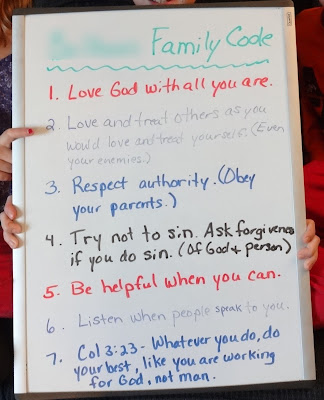 Family Code
1. Love God with all you are.
2. Love and treat others as you
would love and treat yourself. (Even
your enemies.)
3. Respect authority. (Obey
your parents.)
4. Try not to sin. Ask forgiveness
if you do sin. (Of God & person)
5. Be helpful when you can.
6. Listen when people speak to you.
7. Col 3:23 - Whatever you do, do
your best, like you are working
for God, not man.